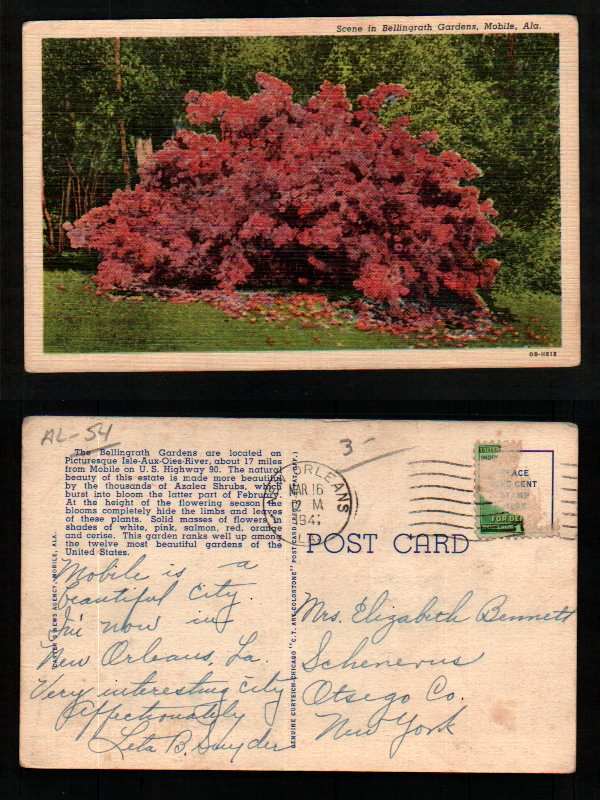 Scene in Bellingrath Gardens, Mobile, Ala.
OB-H818
AL-54
3-
The Bellingrath Gardens are located on
Picturesque Isle-Aux-Oies-River, about 17 miles
from Mobile on U. S. Highway 90. The natural
beauty of this estate is made more beautiful
by the thousands of Azalea Shrubs, which
burst into bloom the latter part of February.
At the height of the flowering season the
blooms completely hide the limbs and leaves
of these plants. Solid masses of flowers in
shades of white, pink, salmon, red, orange
and cerise. This garden ranks well up among
the twelve most beautiful gardens of the
United States.
NEW ORLEANS
MAR 16
12 M
1941
LA.
PLACE
ONE CENT
STAMP
UNITED
FOR DE
1
POST CARD
NEWS AGENCY, MOBILE, ALA.
GENUINE CURTEICH-CHICAGO "C. T. ART-COLORTONE" POST CARD
Mobile is a
beautiful city.
I'm now in
New Orleans, La.
Very interesting city
Affectionately
Leta B. Snyder
Mrs. Elizabeth Bennett
Schenevus
Otsego Co.
New York